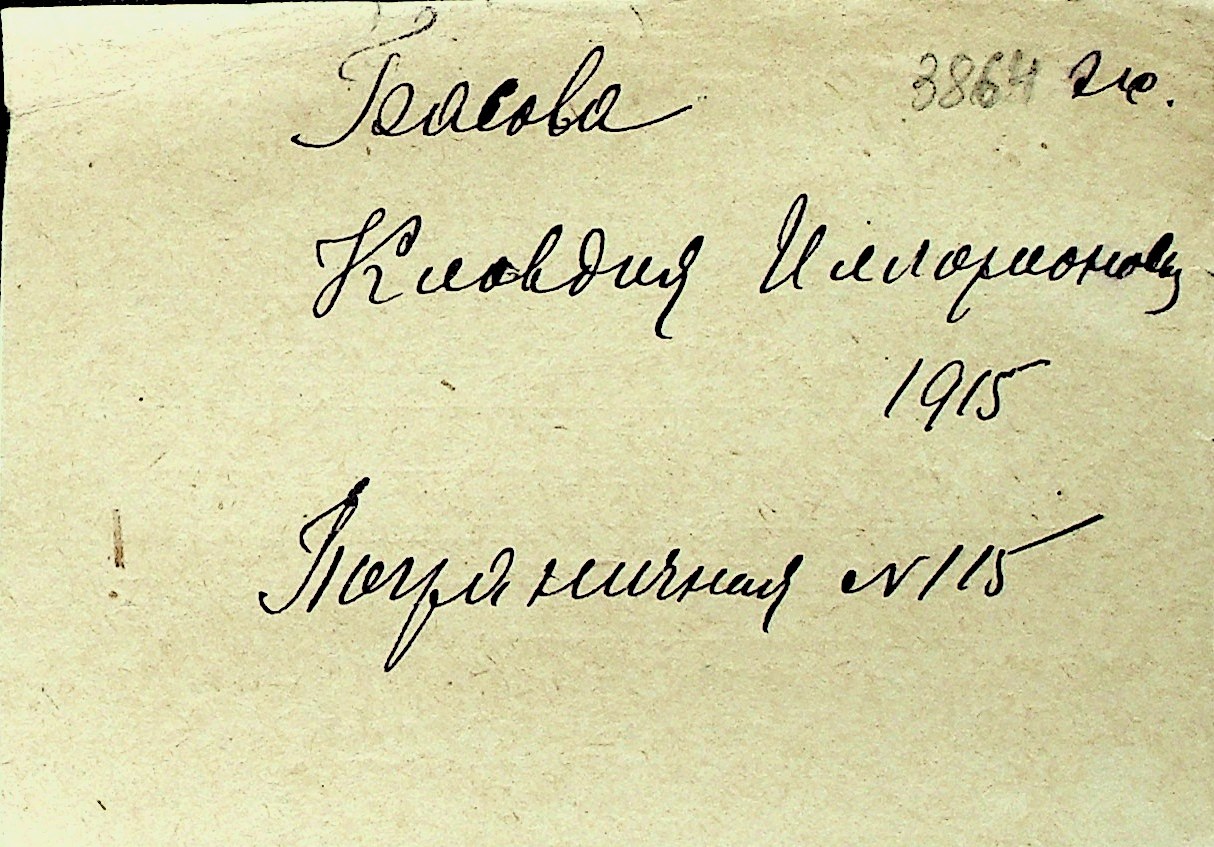 Басова 3864
Клавдия Илларионовн
1915
Пограничная №115